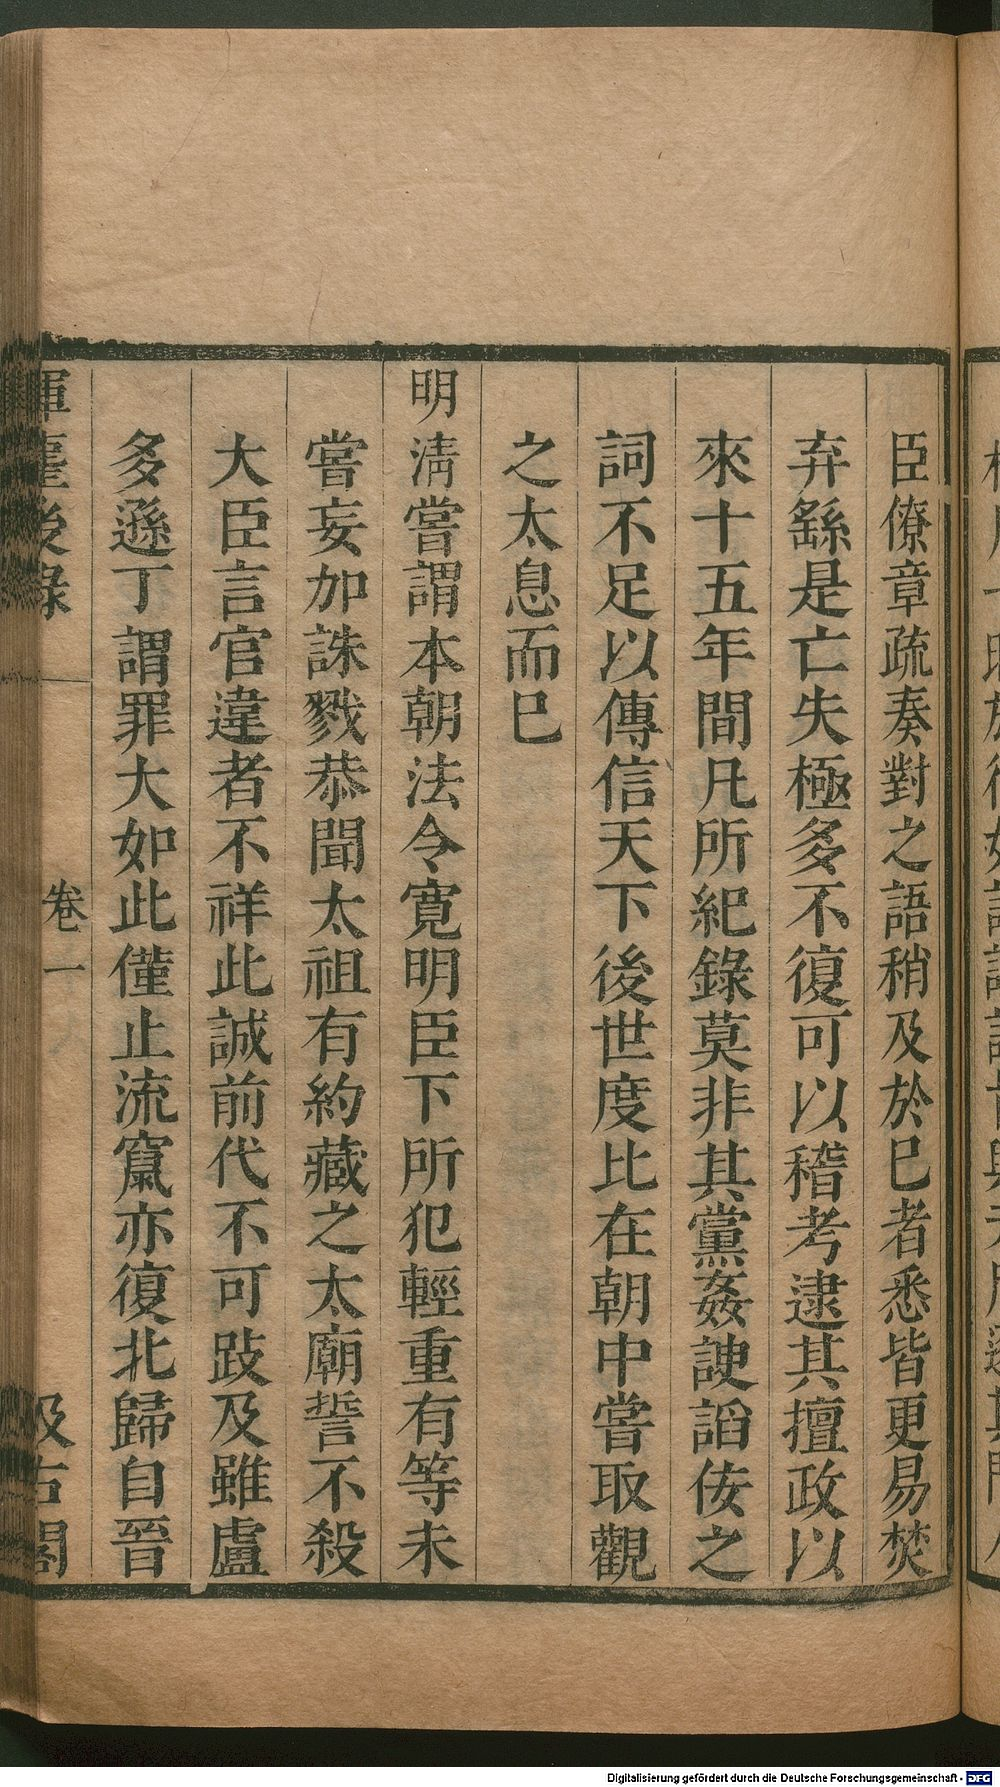 臣僚章疏奏對之語稍及於已者悉皆更易焚
弃繇是亡失極多不復可以稽考逮其擅政以
來十五年間凡所紀錄莫非其黨姦諛諂佞之
詞不足以傳信天下後世度比在朝中嘗取觀
之太息而已
明淸嘗謂本朝法令寛明臣下所犯輕重有等未
嘗妄加誅戮恭聞太祖有約藏之太廟誓不殺
大臣言官違者不祥此誠前代不可跂及雖盧
多遜丁謂罪大如此僅止流竄亦復北歸自晉
揮麈後錄 卷一 汲古閣
Digitalisierung gefördert durch die Deutsche Forschungsgemeinschaft - DFG